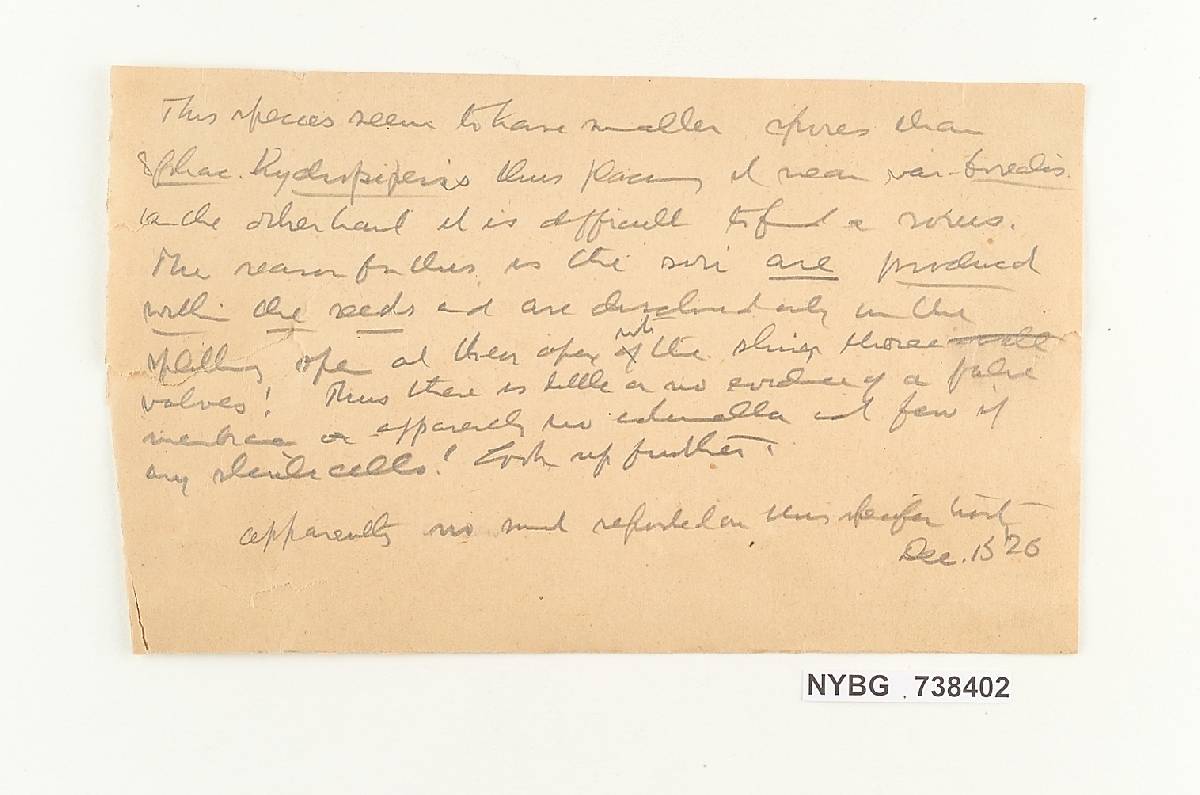 This species seem to have smaller spores than
Sphac. Hydropiperis thus placing it near var. borealis.
On the other hand it is difficult to find a sorus.
The reason for this is the sori are produced
within the seeds and are disclosed only on the
splitting open at their apex of the
valves! Thus there is little or no evidence of a false
membrane or apparently no columella and few if
any sterile cells! Look up further.
apparently no smut reported on this host
Dec. 15 '26
NYBG 738402